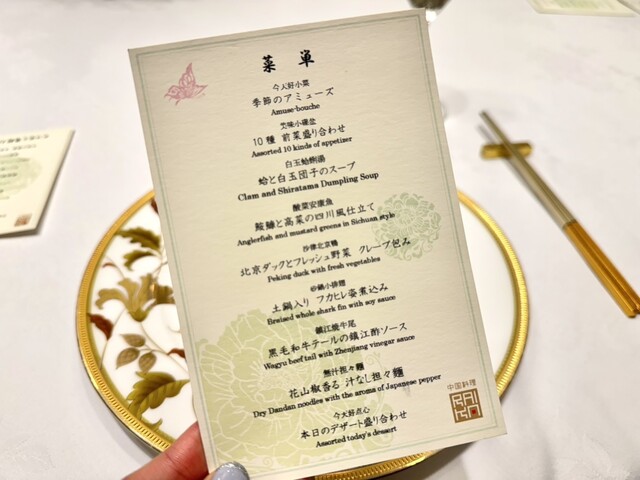 菜単
今人好小菜
季節のアミューズ
Amuse-bouche
10種 前菜盛り合わせ
Assorted 10 kinds of appetizer
白玉蛤蜊湯
蛤と白玉団子のスープ
Clam and Shiratama Dumpling Soup
酸菜安康魚
鮟鱇と高菜の四川風仕立て
Anglerfish and mustard greens in Sichuan style
北京ダックとフレッシュ野菜 クレープ包み
Peking duck with fresh vegetables
砂鍋小排翅
土鍋入り フカヒレ姿煮込み
Braised whole shark fin with soy sauce
鎮江燒牛尾
黒毛和牛テールの鎮江酢ソース
Wagyu beef tail with Zhenjiang vinegar sauce
無汁担々麺
花山椒香る 汁なし担々麺
Dry Dandan noodles with the aroma of Japanese pepper
今大好点心
本日のデザート盛り合わせ
Assorted today's dessert
中国料理